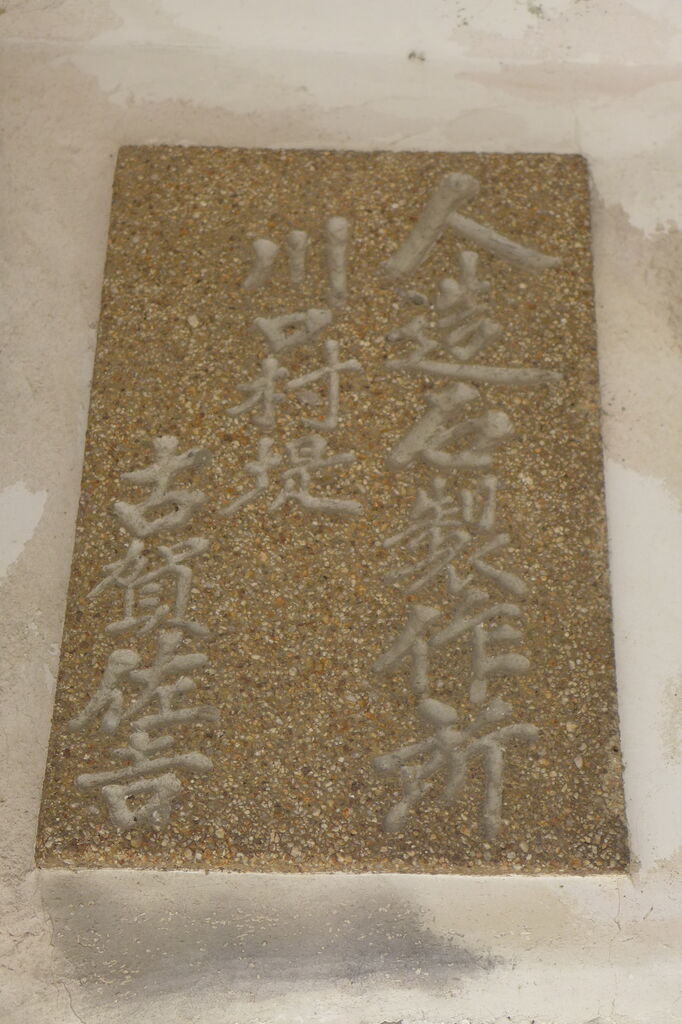 人造石製作所
川口村堤
古賀佐吉